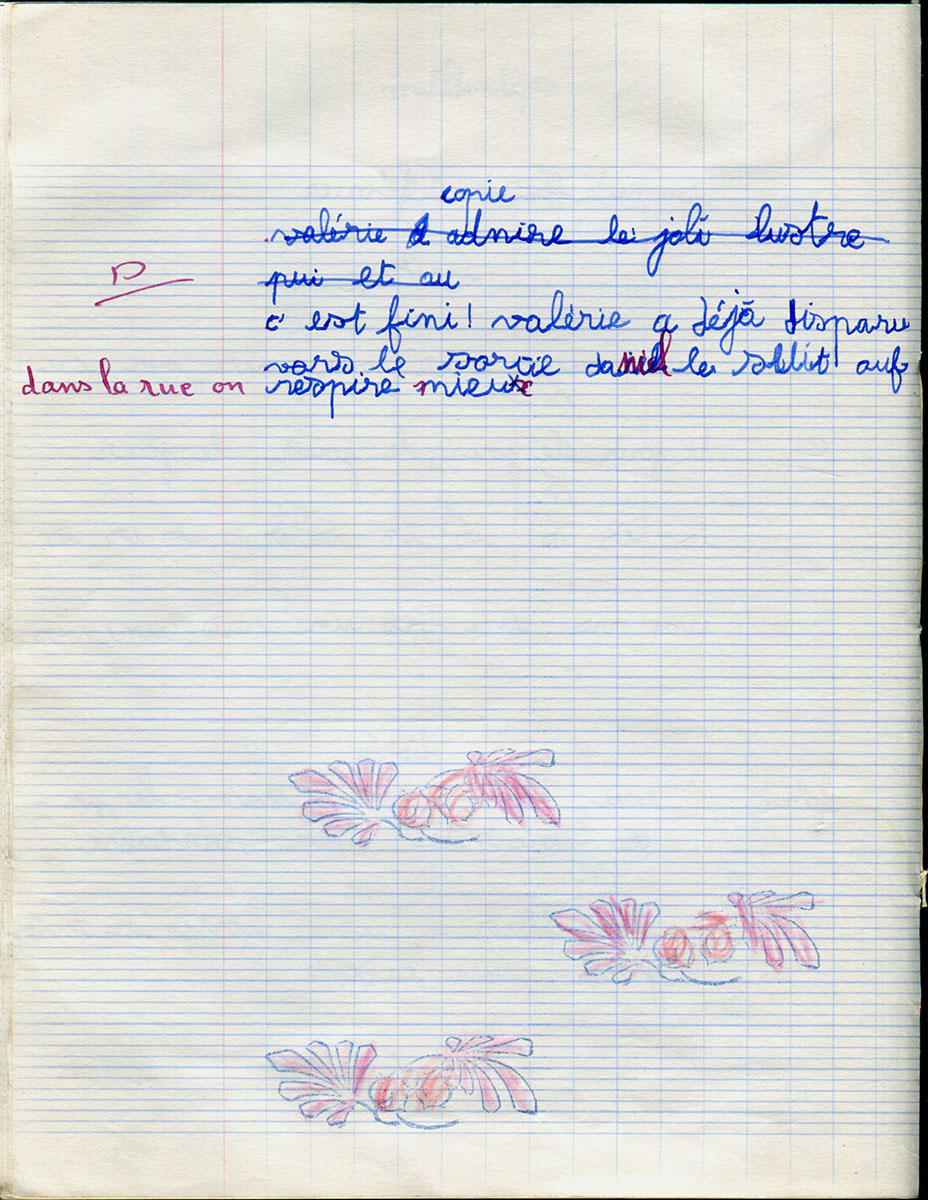 copie
valérie admire le joli lustre
qui et au
P
c'est fini! valérie a déjà disparu
vers le sortie daniel le suit
dans la rue on respire mieux